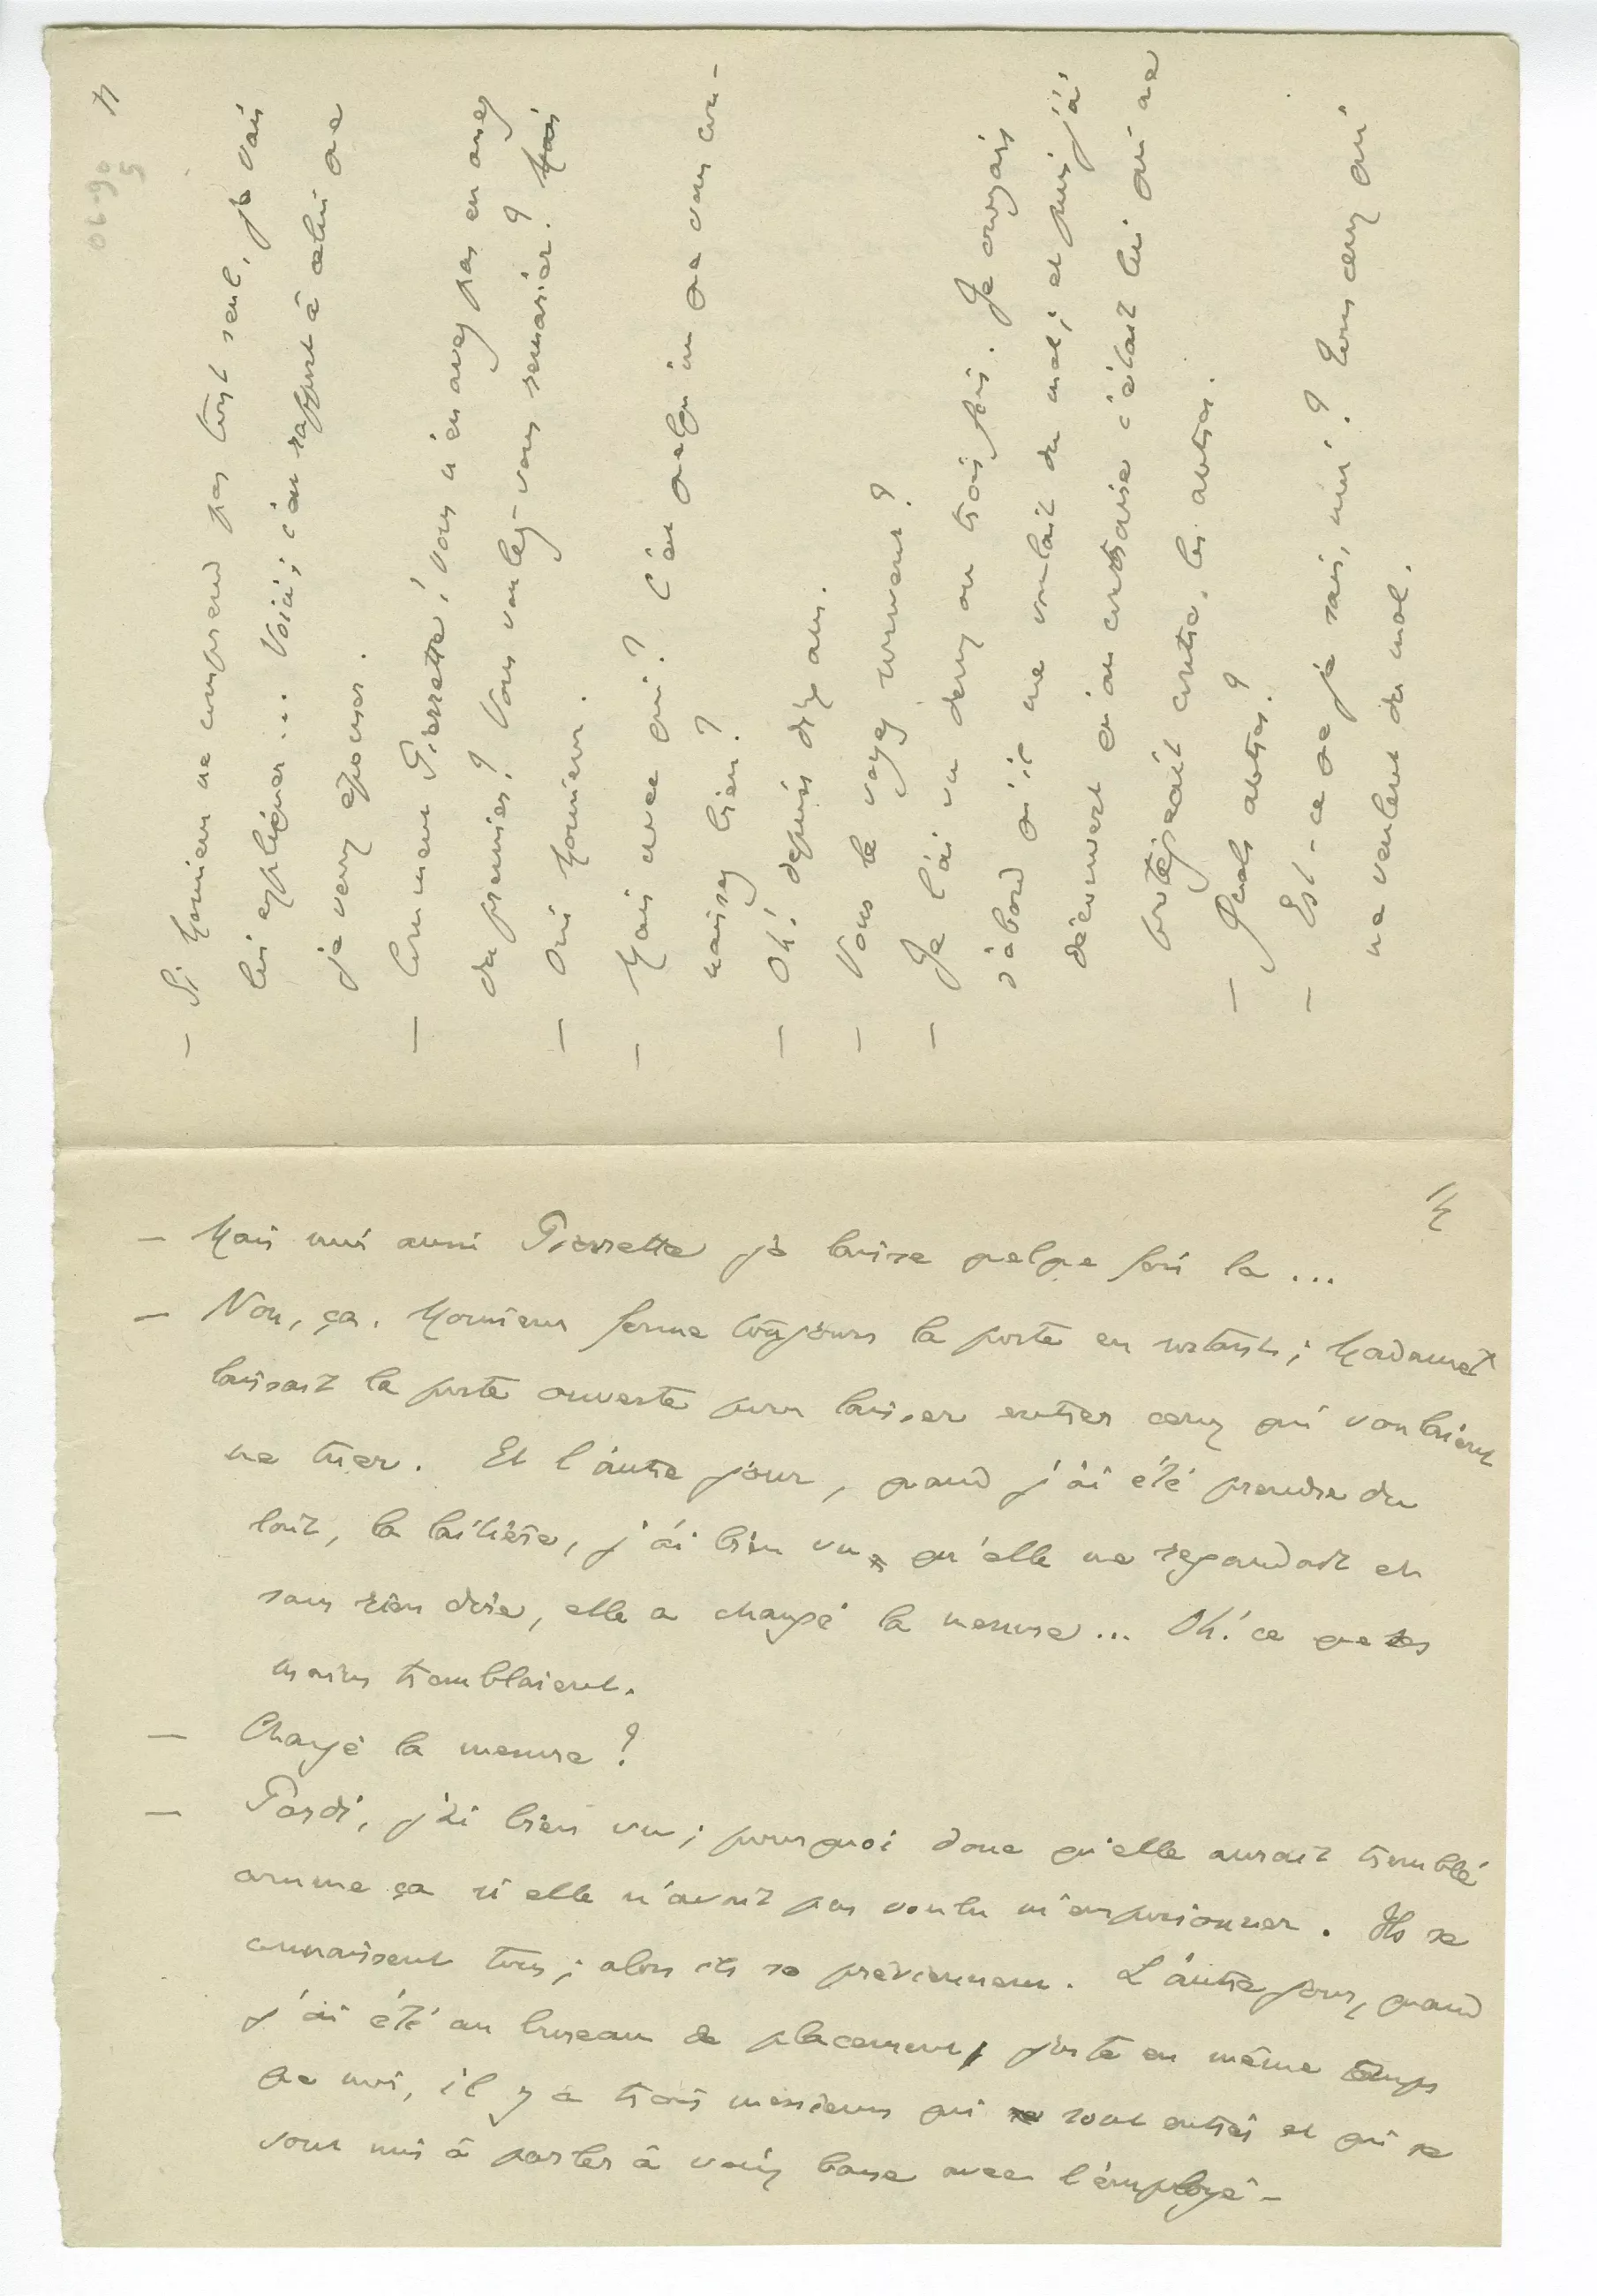 06-90
5
4
— Si Monsieur ne comprend pas tout seul, je vais
lui expliquer... Voici; c'est rapport à celui que
je veux épouser.
— Comment Pierrette! vous n'en avez pas assez
du premier? Vous voulez-vous remarier? Mais
— Oui Monsieur.
— Mais avec qui? C'est quelqu'un que vous con-
naissez bien?
— Oh! depuis dix ans.
— Vous le voyez souvent?
— Je l'ai vu deux ou trois fois. Je croyais
d'abord qu'il me voulait du mal; et puis j'ai
découvert qu'au contraire c'était lui qui me
protégeait contre les autres.
— Quels autres?
— Est-ce que je sais, moi? Tous ceux qui
me veulent du mal.
— Mais moi aussi Pierrette je laisse quelque fois la...
— Non, ça. Monsieur ferme toujours la porte en sortant; Madame
laissait la porte ouverte pour laisser entrer ceux qui voulaient
me tuer. Et l'autre jour, quand j'ai été prendre du
lait, la laitière, j'ai bien vu qu'elle me regardait et
sans rien dire, elle a changé la mesure... Oh! ce que ses
mains tremblaient.
— Changé la mesure?
— Pardi, j'ai bien vu; pourquoi donc qu'elle aurait tremblé
comme ça si elle n'avait pas voulu m'empoisonner. Ils se
connaissent tous; alors ils se préviennent. L'autre jour, quand
j'ai été au bureau de placement, juste en même temps
que moi, il y a trois messieurs qui sont entrés et qui se
sont mis à parler à voix basse avec l'employé-